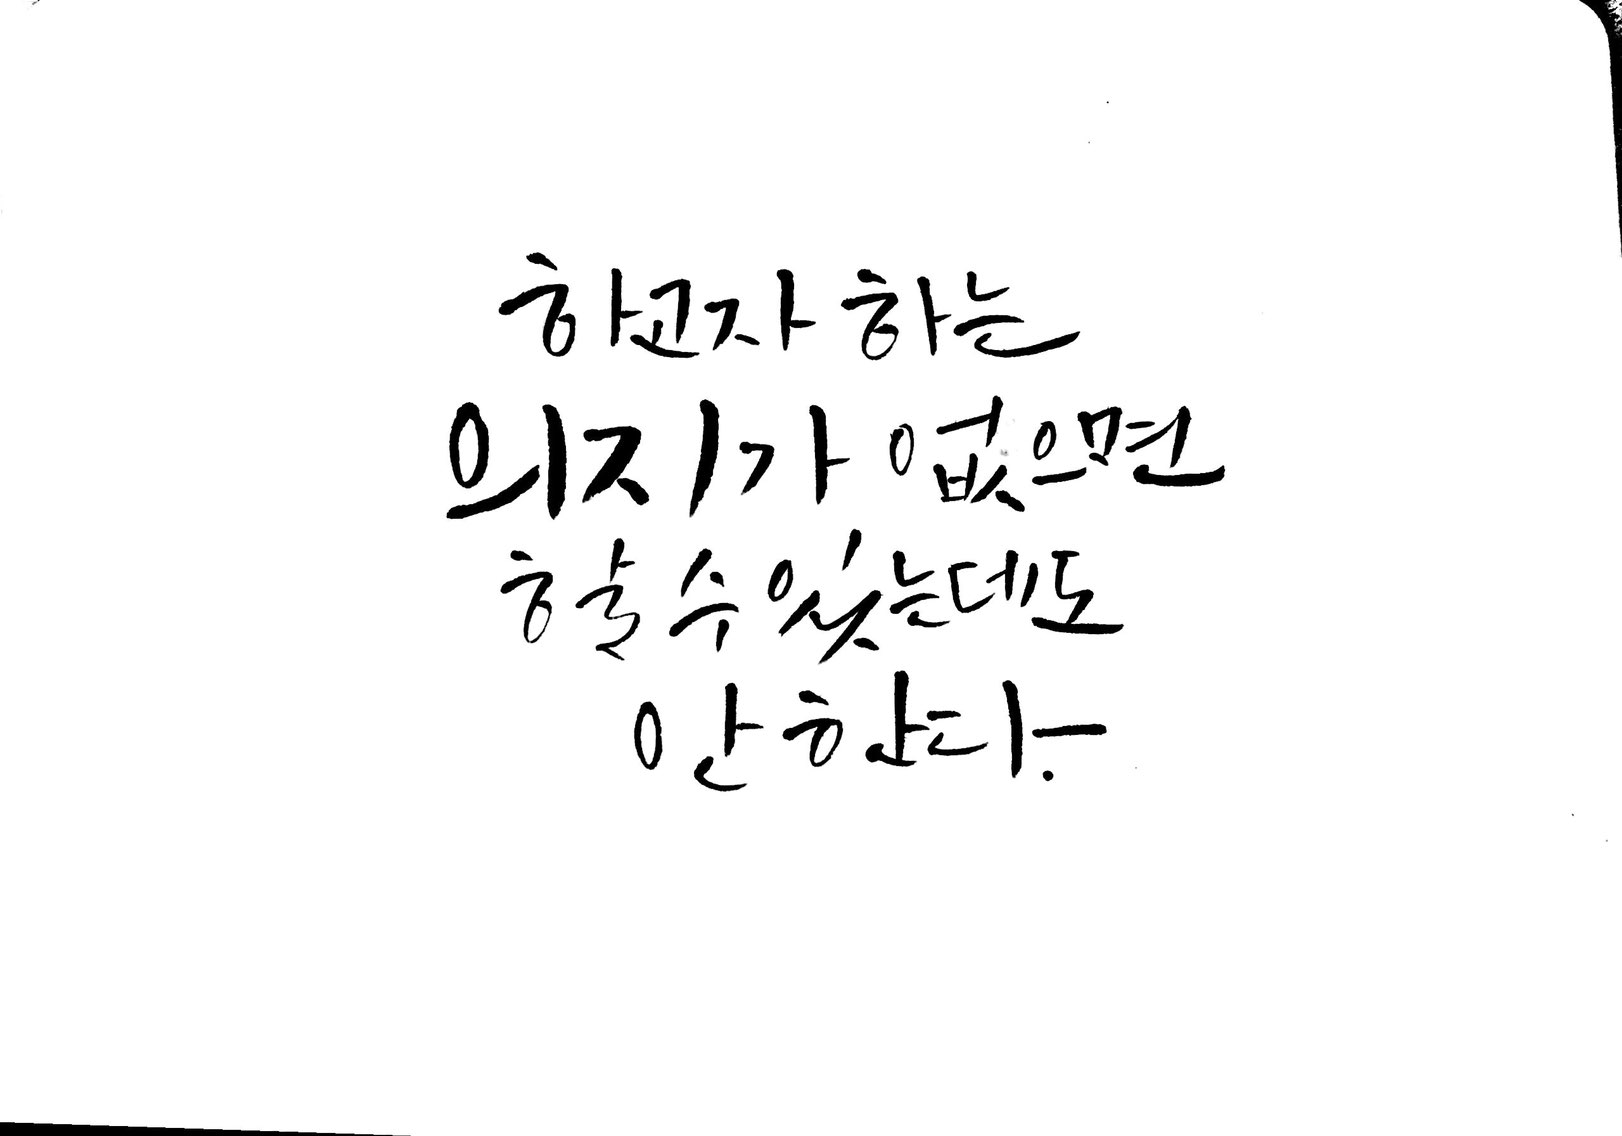 하고자 하는
의지가 없으면
할 수 있는데도
안 한다.